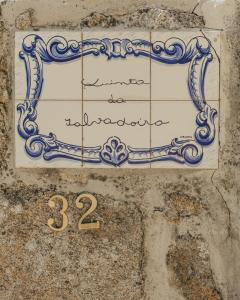 Quinta
da
Salvadoira
32